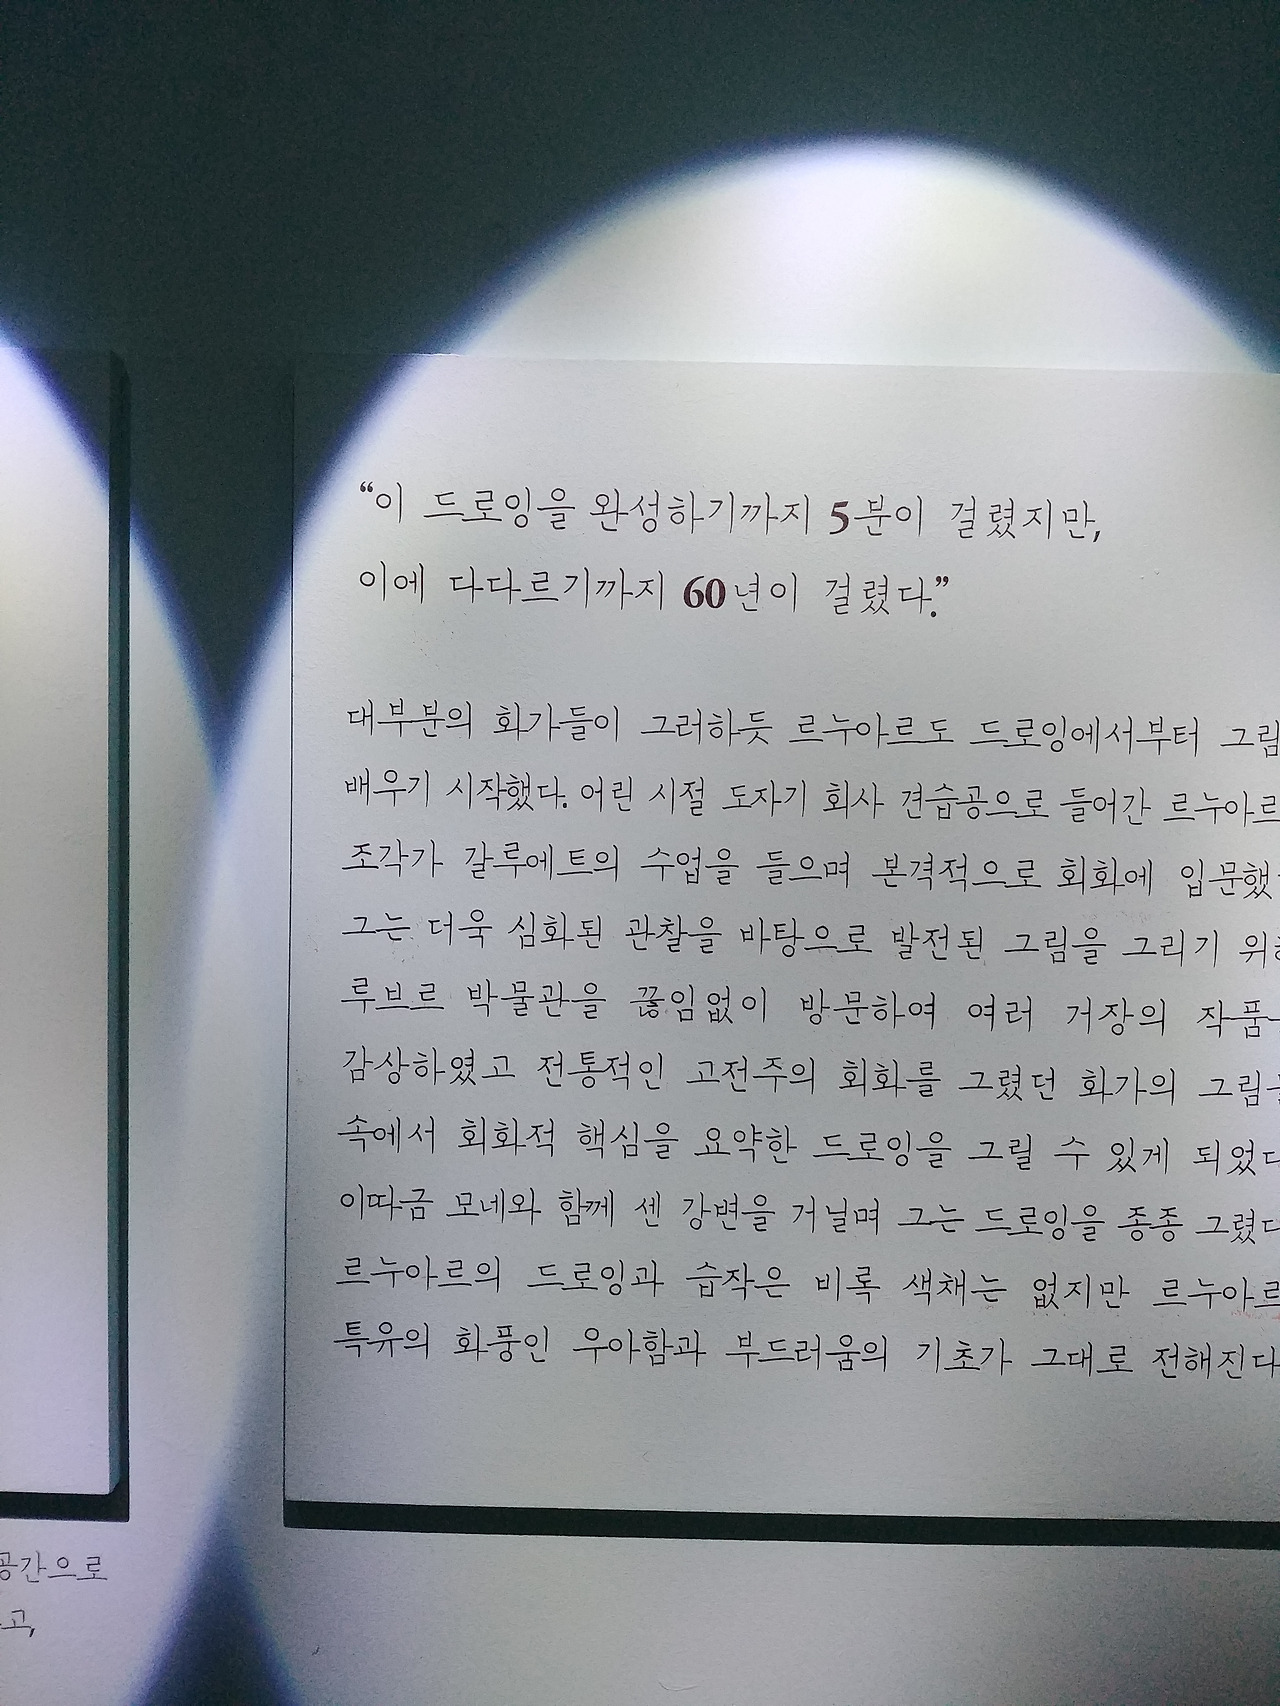 “이 드로잉을 완성하기까지 5분이 걸렸지만,
이에 다다르기까지 60년이 걸렸다.”
대부분의 화가들이 그러하듯 르누아르도 드로잉에서부터 그림
배우기 시작했다. 어린 시절 도자기 회사 견습공으로 들어간 르누아르
조각가 갈루에트의 수업을 들으며 본격적으로 회화에 입문했
그는 더욱 심화된 관찰을 바탕으로 발전된 그림을 그리기 위해
루브르 박물관을 끊임없이 방문하여 여러 거장의 작품
감상하였고 전통적인 고전주의 회화를 그렸던 화가의 그림
속에서 회화적 핵심을 요약한 드로잉을 그릴 수 있게 되었다
이따금 모네와 함께 센 강변을 거닐며 그는 드로잉을 종종 그렸다
르누아르의 드로잉과 습작은 비록 색채는 없지만 르누아르
특유의 화풍인 우아함과 부드러움의 기초가 그대로 전해진다
공간으로
고,